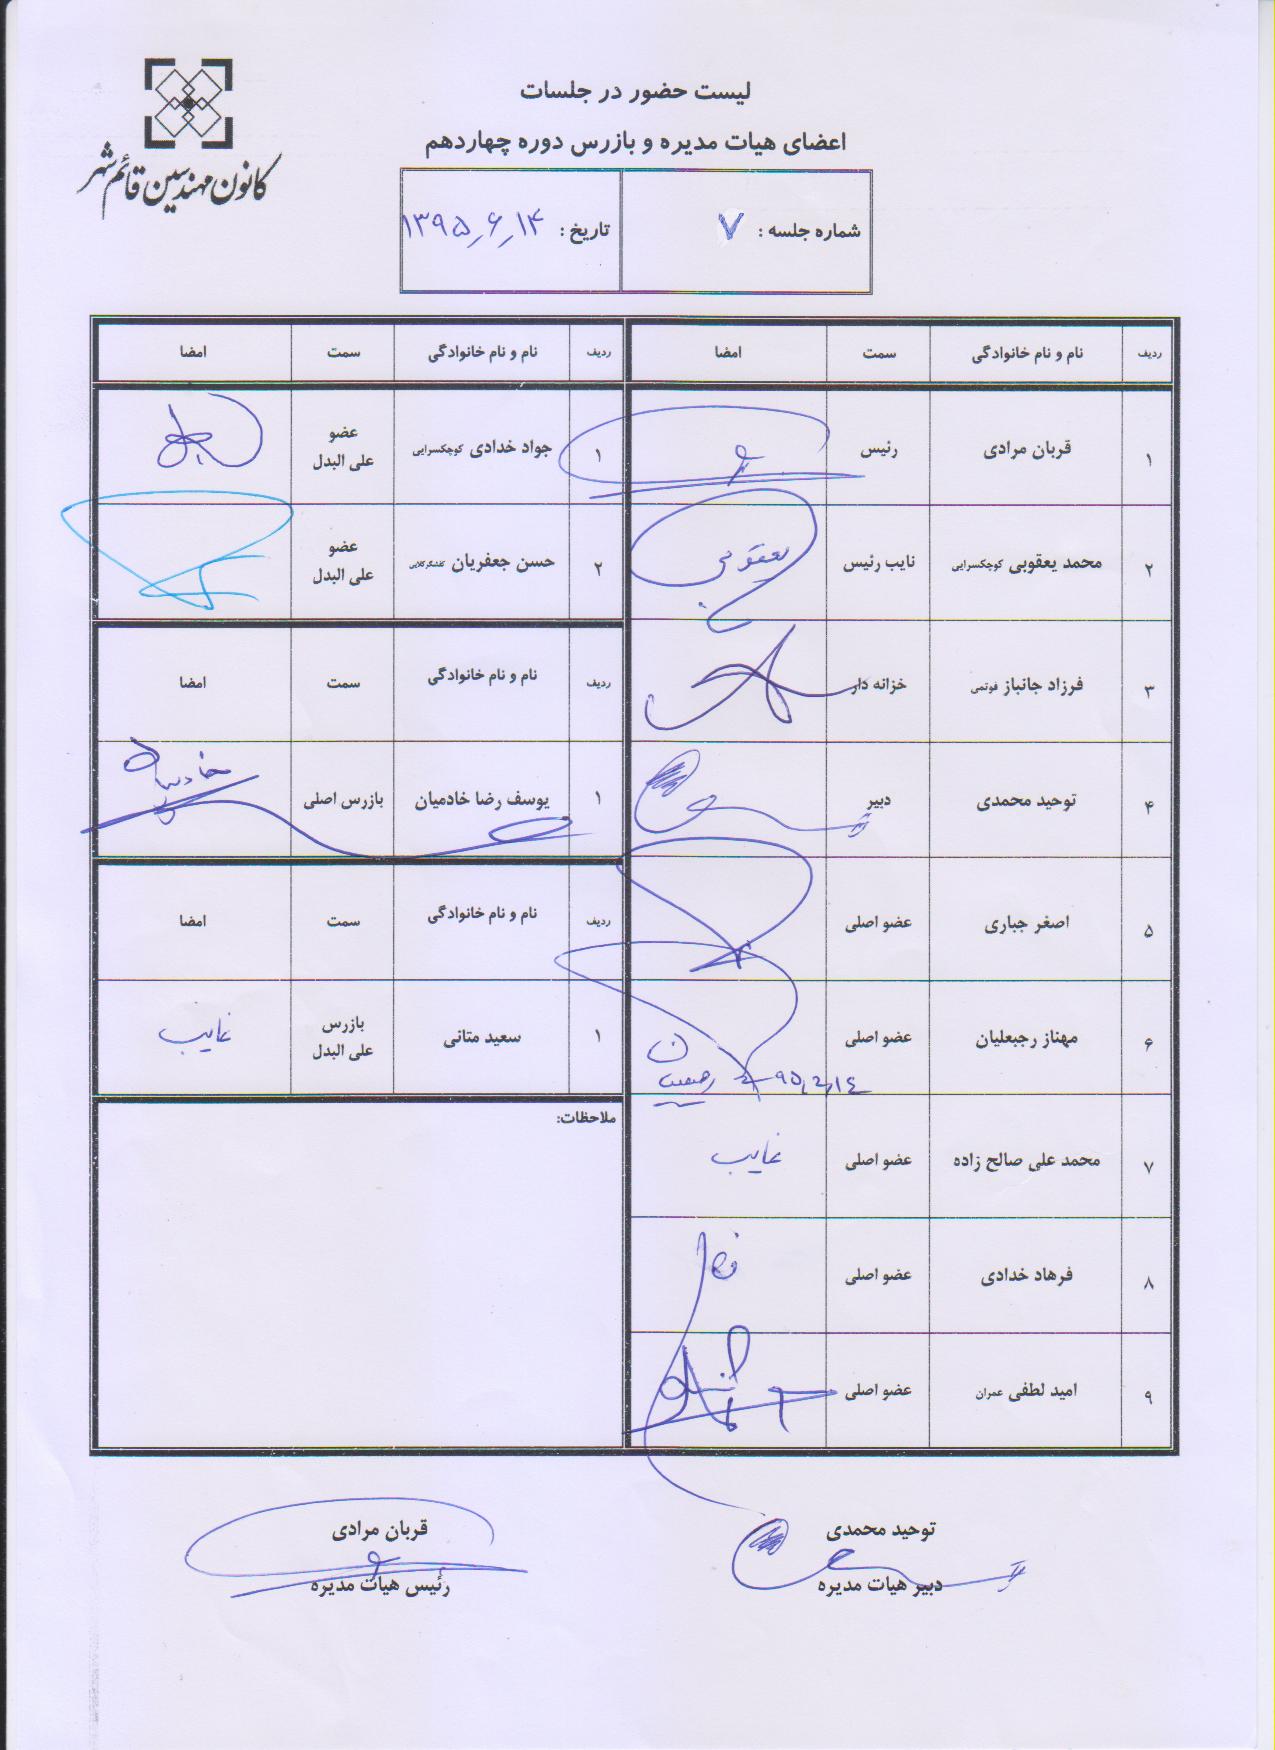 کانون مهندسین قائم شهر
لیست حضور در جلسات
اعضای هیات مدیره و بازرس دوره چهاردهم
شماره جلسه : ۷
تاریخ : ۱۳۹۵,۶,۱۴
ردیف نام و نام خانوادگی سمت امضا
۱ قربان مرادی رئیس
۲ محمد یعقوبی کوچکسرایی نایب رئیس یعقوبی
۳ فرزاد جانباز فوتمی خزانه دار
۴ توحید محمدی دبیر
۵ اصغر جباری عضو اصلی
۶ مهناز رجبعلیان عضو اصلی
۷ محمد علی صالح زاده عضو اصلی غایب
۸ فرهاد خدادی عضو اصلی
۹ امید لطفی عمران عضو اصلی
ردیف نام و نام خانوادگی سمت امضا
۱ جواد خدادی کوچکسرایی عضو
علی البدل
۲ حسن جعفریان کفشگرکلایی عضو
علی البدل
ردیف نام و نام خانوادگی سمت امضا
۱ یوسف رضا خادمیان بازرس اصلی
ردیف نام و نام خانوادگی سمت امضا
۱ سعید متانی بازرس
علی البدل غایب
ملاحظات:
توحید محمدی
دبیر هیات مدیره
قربان مرادی
رئیس هیات مدیره